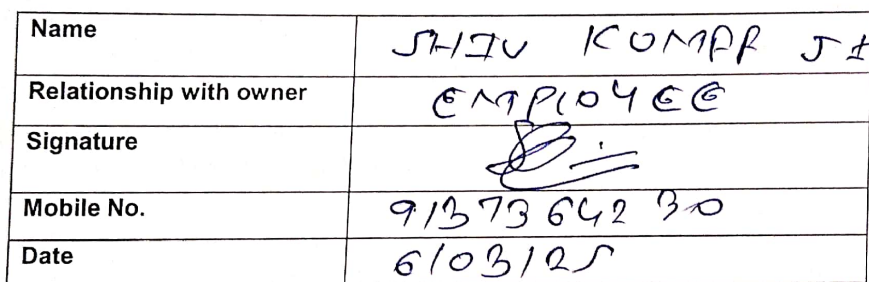 Name SHIV KUMAR
Relationship with owner EMPLOYEE
Signature
Mobile No. 9137364230
Date 6/03/25